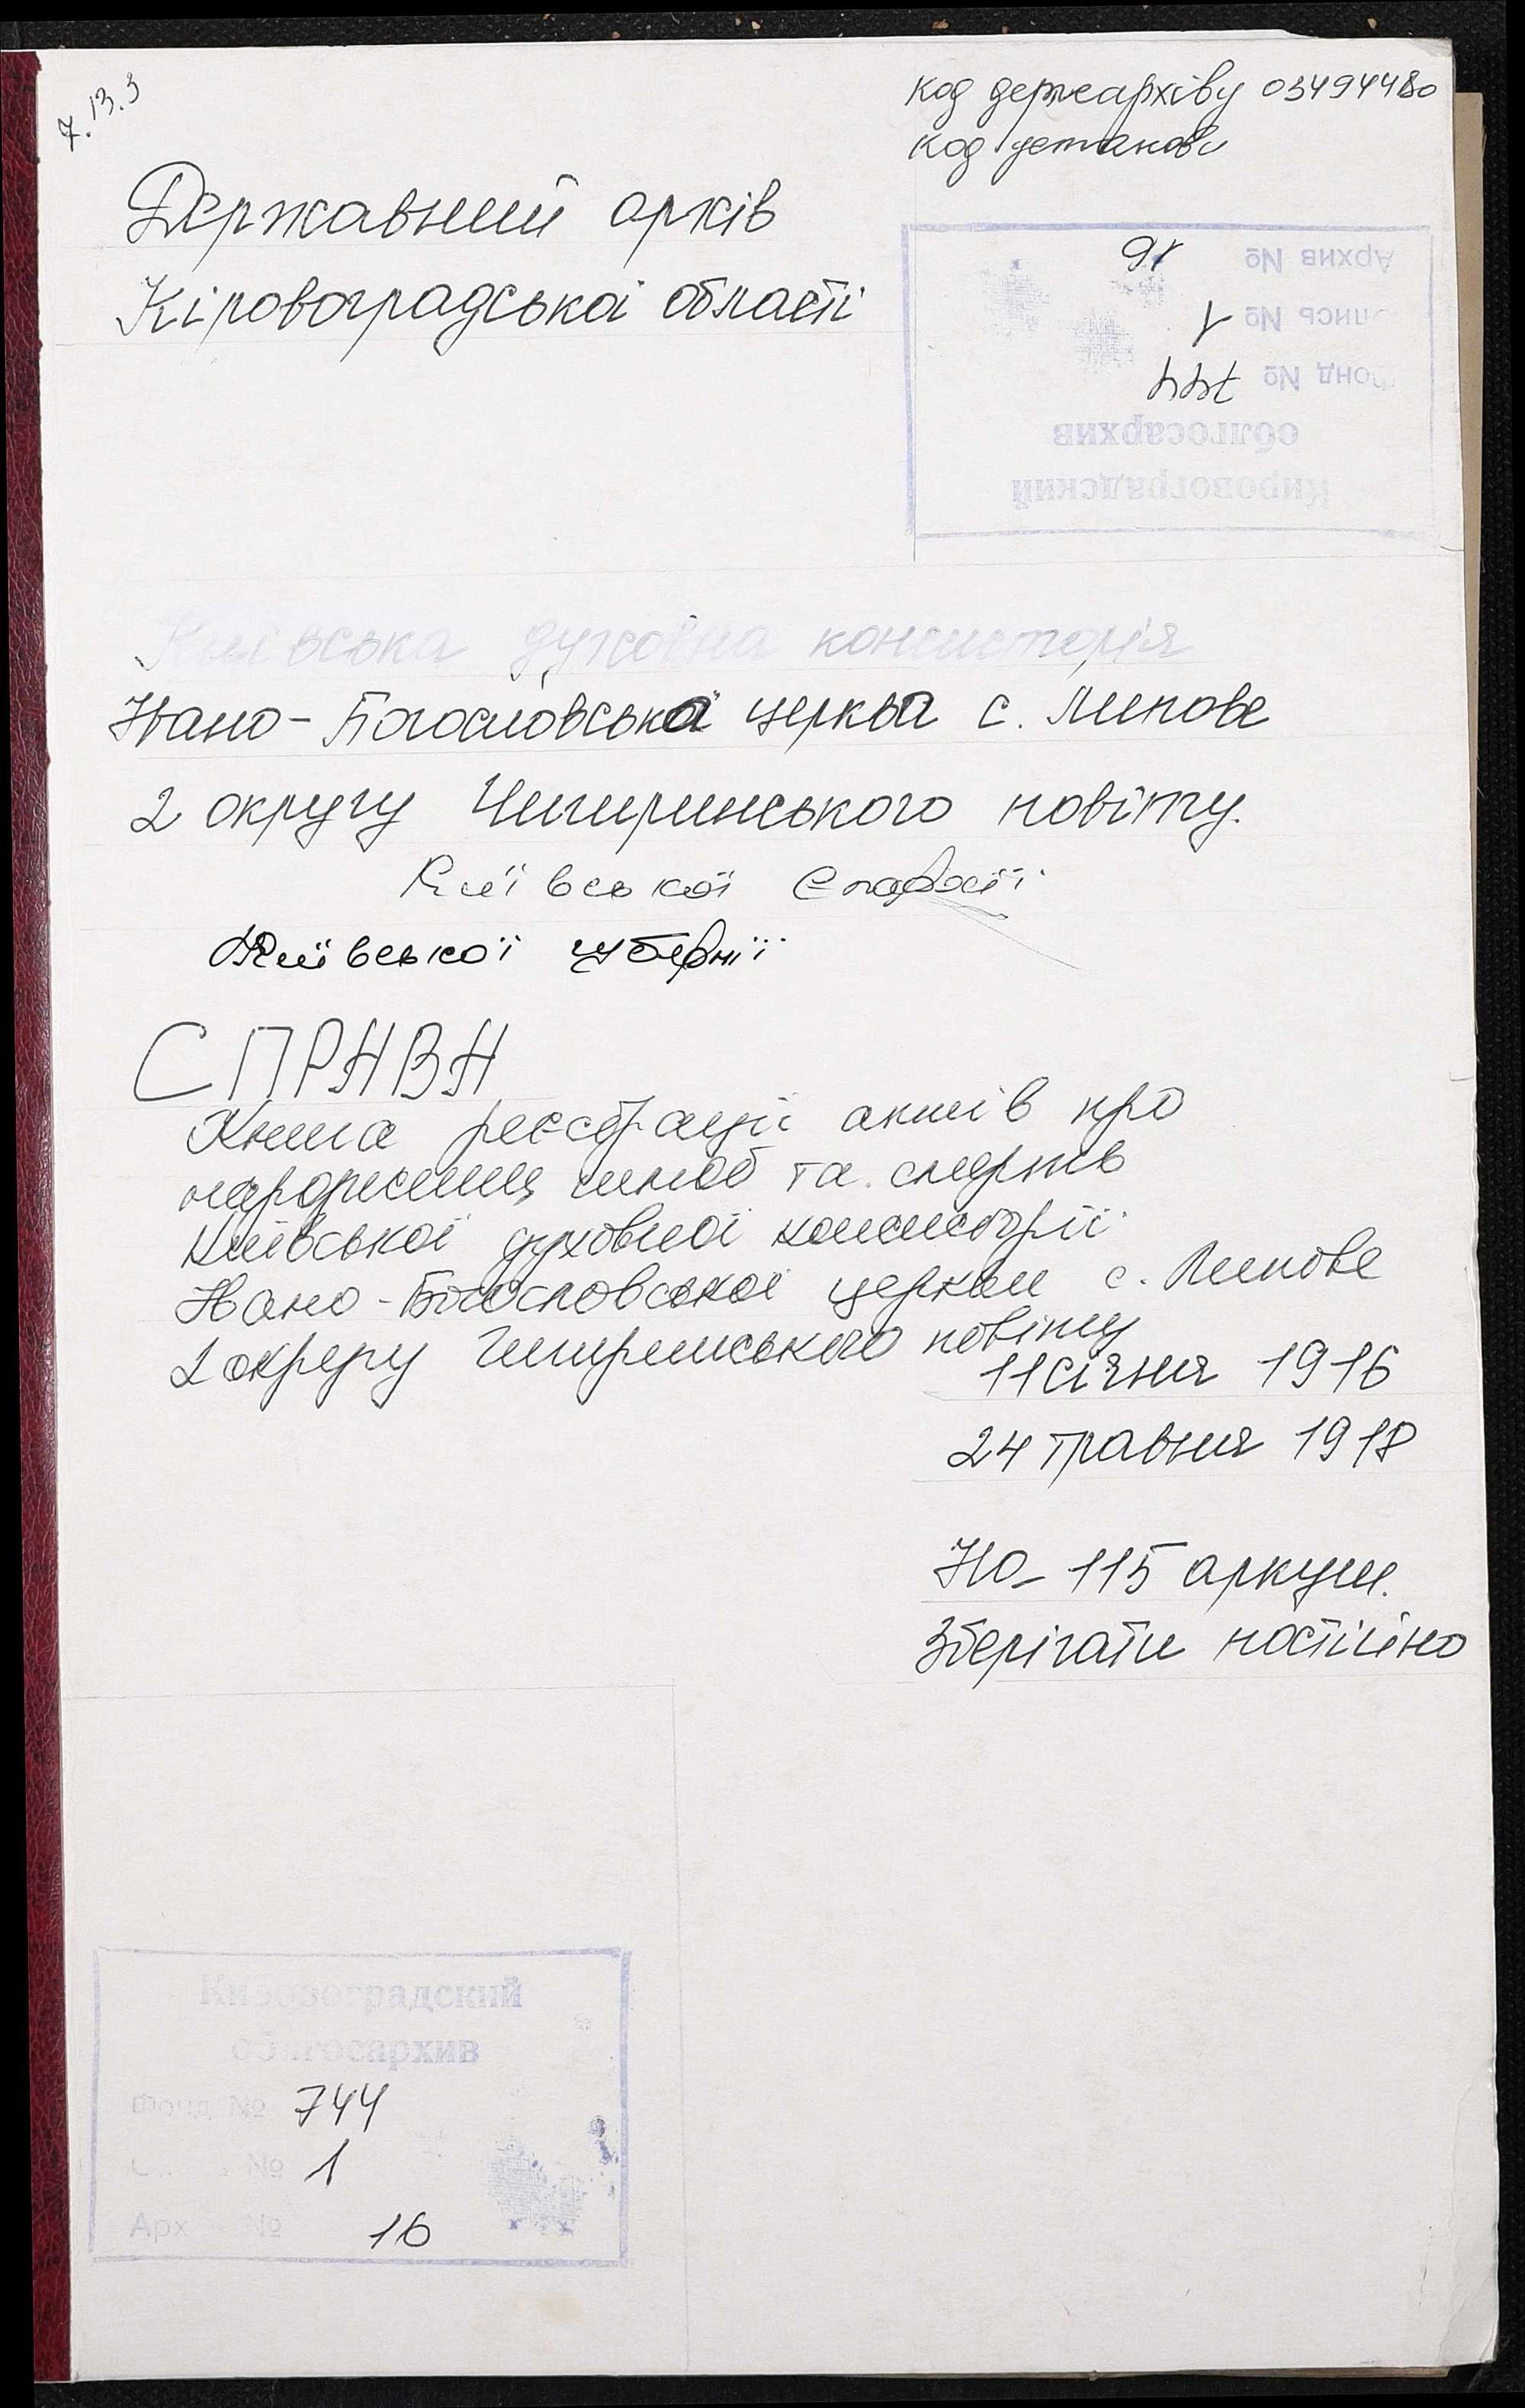 7.13.3
код держархіву 03494480
код установи
Державний архів
Кіровоградської області
Архив № 16
опись № 1
Фонд № 744
облгосархив
Кировоградский
Київська духовна консисторія
Івано-Богословська церква с. Липове
2 округу Чигиринського повіту.
Київської Єпархії
Київської губернії
СПРАВА
Книга реєстрації актів про
народження, шлюб та смерть
Київської духовної консисторії
Івано-Богословської церкви с. Липове
2 округу Чигиринського повіту
11 січня 1916
24 травня 1918
На 115 аркуш.
Зберігати постійно
Кировоградский
облгосархив
Фонд № 744
№ 1
Арх № 16